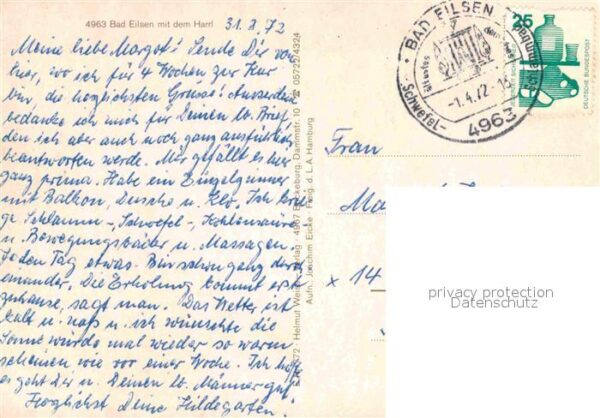 4963 Bad Eilsen mit dem Harrl
31.3.72
Meine liebe Margot! Sende Dir von
hier, wo ich für 4 Wochen zur Kur
bin, die herzlichsten Grüsse! Ausserdem
bedanke ich mich für Deinen lb. Brief,
den ich aber auch noch ganz ausführlich
beantworten werde. Mir gefällt es hier
ganz prima. Habe ein Einzelzimmer
mit Balkon, Dusche u. Klo. Ich kriege
Schlamm-, Schwefel-, Kohlensäure
u. Bewegungsbäder u. Massagen.
Jeden Tag etwas. Bin schon ganz durch-
einander. Die Erholung kommt erst
zuhause, sagt man. Das Wetter ist
kalt u. naß u. ich wünschte die
Sonne würde mal wieder so warm
scheinen wie vor einer Woche. Ich hoffe
es geht Dir u. Deinen lb. Männer gut!
Herzlichst Deine Hildegarten!
Helmut Verlag · 4967 Bückeburg, Dammstr. 10 · ☎ 05722/4324
Aufn.: Joachim Eicke · Freig. d. L.A. Hamburg
BAD EILSEN
Schwefel-
-1.4.72
4963
25
DEUTSCHE BUNDESPOST
Frau
14
privacy protection
Datenschutz